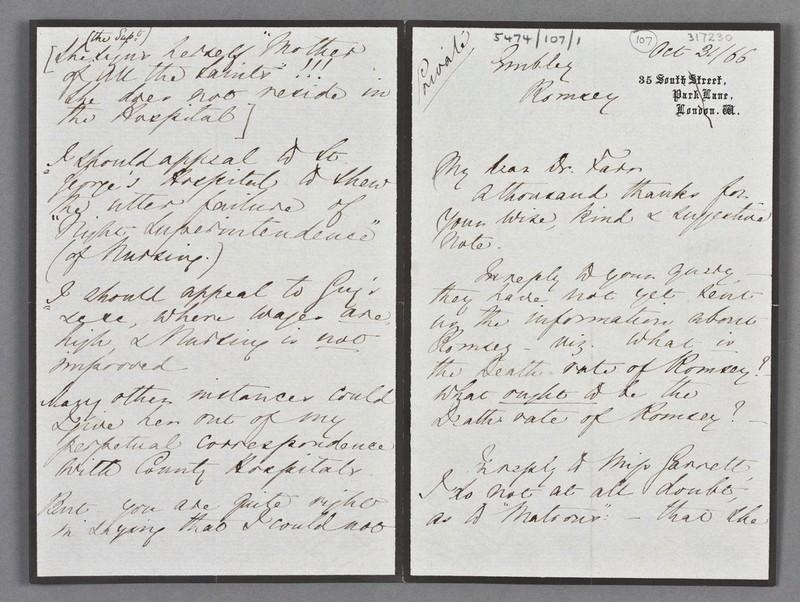 (the Supt.)
[She signs herself "Mother
of All the Saints"!!!
She does not reside in
the Hospital]
"I should appeal to St.
George's Hospital to shew
the utter failure of
"Night Superintendence"
(of Nursing.)
"I should appeal to Guy's
where wages are
high, & Nursing is not
improved
Many other instances could
I give her out of my
perpetual correspondence
with County Hospitals.
But you are quite right
in saying that I could not
5474/107/1
107
317230
Private
Embley
Romsey
Oct 21/66
35 South Street,
Park Lane,
London. W.
My dear Dr. Farr
A thousand thanks for
your wise, kind & suggestive
note.
In reply to your query,
they have not yet sent
us the information about
Romsey - viz. What is
the Death-rate of Romsey?
What ought to be the
Death-rate of Romsey? -
In reply to Miss Garrett
I do not at all doubt,
as to "Matrons": - that she